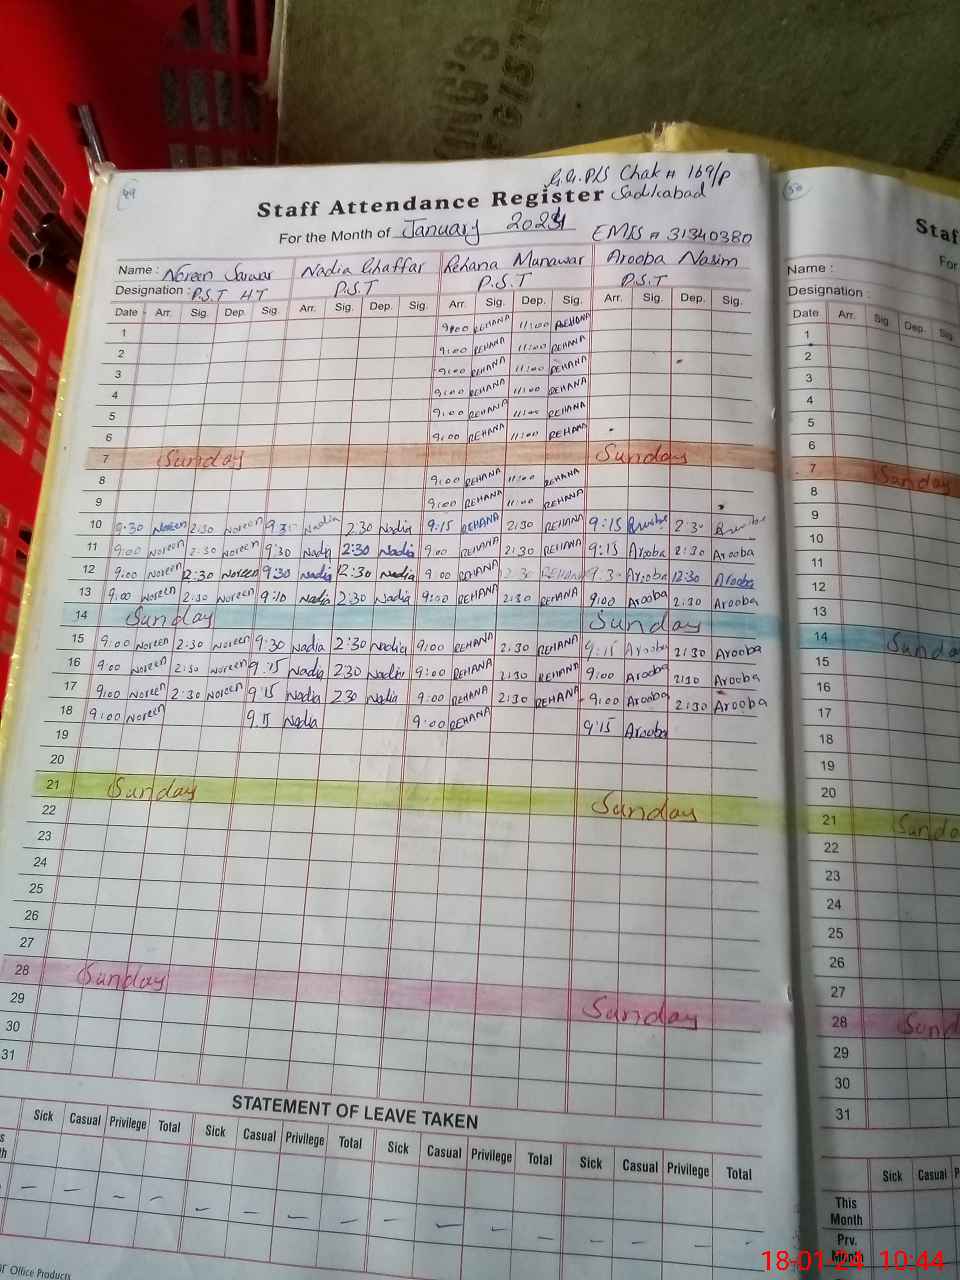 49
G.G.P/S Chak # 169/P
Staff Attendance Register Sadikabad
For the Month of January 2024
EMIS # 31340380
Name : Noreen Sarwar Nadia Ghaffar Rehana Munawar Arooba Nasim
Designation : P.S.T HT P.S.T P.S.T P.S.T
Date Arr. Sig. Dep. Sig. Arr. Sig. Dep. Sig. Arr. Sig. Dep. Sig. Arr. Sig. Dep. Sig.
1 9:00 REHANA 11:00 REHANA
2 9:00 REHANA 11:00 REHANA
3 9:00 REHANA 11:00 REHANA
4 9:00 REHANA 11:00 REHANA
5 9:00 REHANA 11:00 REHANA
6 9:00 REHANA 11:00 REHANA
7 Sunday Sunday
8 9:00 REHANA 11:00 REHANA
9 9:00 REHANA 11:00 REHANA
10 9:30 Noreen 2:30 Noreen 9:30 Nadia 2:30 Nadia 9:15 REHANA 2:30 REHANA 9:15 2:30
11 9:00 Noreen 2:30 Noreen 9:30 Nadia 2:30 Nadia 9:00 REHANA 2:30 REHANA 9:15 Arooba 2:30 Arooba
12 9:00 Noreen 2:30 Noreen 9:30 Nadia 12:30 Nadia 9:00 REHANA 2:30 REHANA 9:30 Arooba 12:30 Arooba
13 9:00 Noreen 2:30 Noreen 9:10 Nadia 2:30 Nadia 9:00 REHANA 2:30 REHANA 9:00 Arooba 2:30 Arooba
14 Sunday Sunday
15 9:00 Noreen 2:30 Noreen 9:30 Nadia 2:30 Nadia 9:00 REHANA 2:30 REHANA 9:15 Arooba 2:30 Arooba
16 9:00 Noreen 2:30 Noreen 9:15 Nadia 2:30 Nadia 9:00 REHANA 2:30 REHANA 9:00 Arooba 2:30 Arooba
17 9:00 Noreen 2:30 Noreen 9:15 Nadia 2:30 Nadia 9:00 REHANA 2:30 REHANA 9:00 Arooba 2:30 Arooba
18 9:00 Noreen 9:15 Nadia 9:00 REHANA 9:15 Arooba
19
20
21 Sunday Sunday
22
23
24
25
26
27
28 Sunday Sunday
29
30
31
STATEMENT OF LEAVE TAKEN
Sick Casual Privilege Total Sick Casual Privilege Total Sick Casual Privilege Total Sick Casual Privilege Total
Office Products
50
Staf
For
Name :
Designation :
Date Arr. Sig. Dep. Sig
1
2
3
4
5
6
7 Sunday
8
9
10
11
12
13
14 Sunda
15
16
17
18
19
20
21 Sunda
22
23
24
25
26
27
28 Sund
29
30
31
Sick Casual P
This
Month
Prv.
Month
18-01-24 10:44